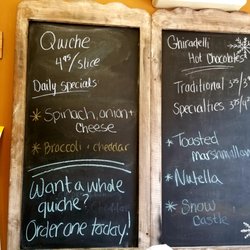 Quiche
4.95/slice
Daily specials
* Spinach, onion +
Cheese
* Broccoli + cheddar
Want a whole
quiche?
Order one today!
Ghiradelli
Hot Chocolates
Traditional
Specialties
* Toasted
marshmallow
* Nutella
* Snow
Castle